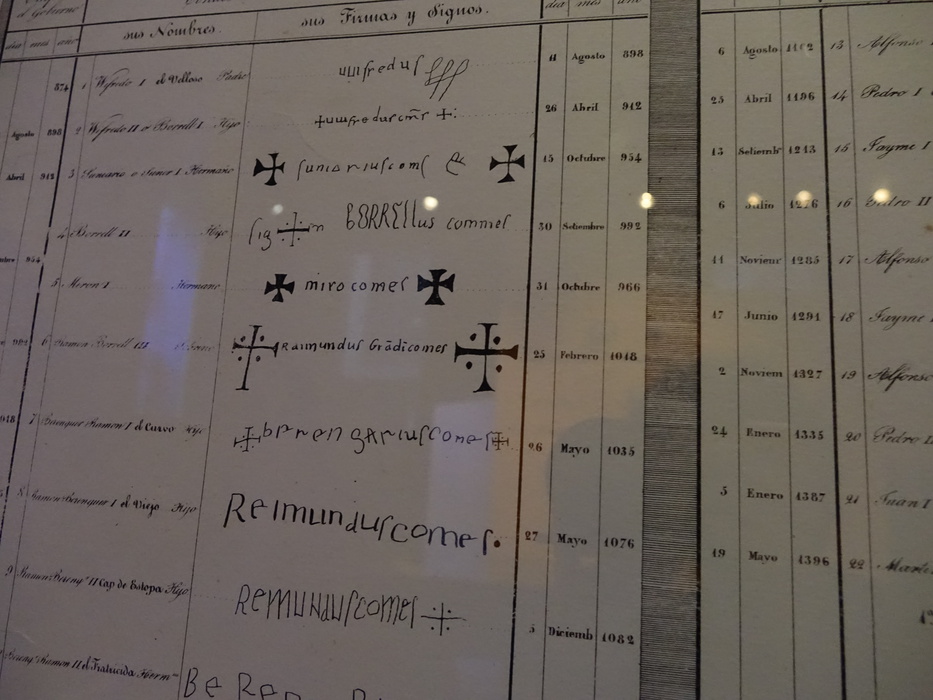 el Gobierno
sus Nombres. sus Firmas y Signos. dia mes año
dia mes año
874 1 Wifredo I el Velloso Padre uuifredus 11 Agosto 898
Agosto 898 2 Wifredo II o Borrell I Hijo +uuifreduscms + 26 Abril 912
Abril 912 3 Suniario o Suñer I Hermano suniariuscoms 15 Octubre 954
4 Borrell II Hijo sig + m BORRELLus commes 30 Setiembre 992
954 5 Miron I Hermano mirocomes 31 Octubre 966
992 6 Ramon Borrell III RAimundus Grãdicomes 25 Febrero 1018
1018 7 Berenguer Ramon I el Curvo Hijo berengariuscomes 26 Mayo 1035
8 Ramon Berenguer I el Viejo Hijo Reimunduscomes. 27 Mayo 1076
9 Ramon Bereng.r II Cap de Estopa Hijo Remunduscomes 5 Diciemb 1082
Bereng.r Ramon II el Fratricida Herm.no BeRen
6 Agosto 1162 13 Alfonso
25 Abril 1196 14 Pedro I
13 Setiemb.e 1213 15 Jayme I
6 Julio 1276 16 Pedro II
11 Noviem 1285 17 Alfonso
17 Junio 1291 18 Jayme
2 Noviem 1327 19 Alfonso
24 Enero 1335 20 Pedro
5 Enero 1387 21 Juan I
19 Mayo 1396 22